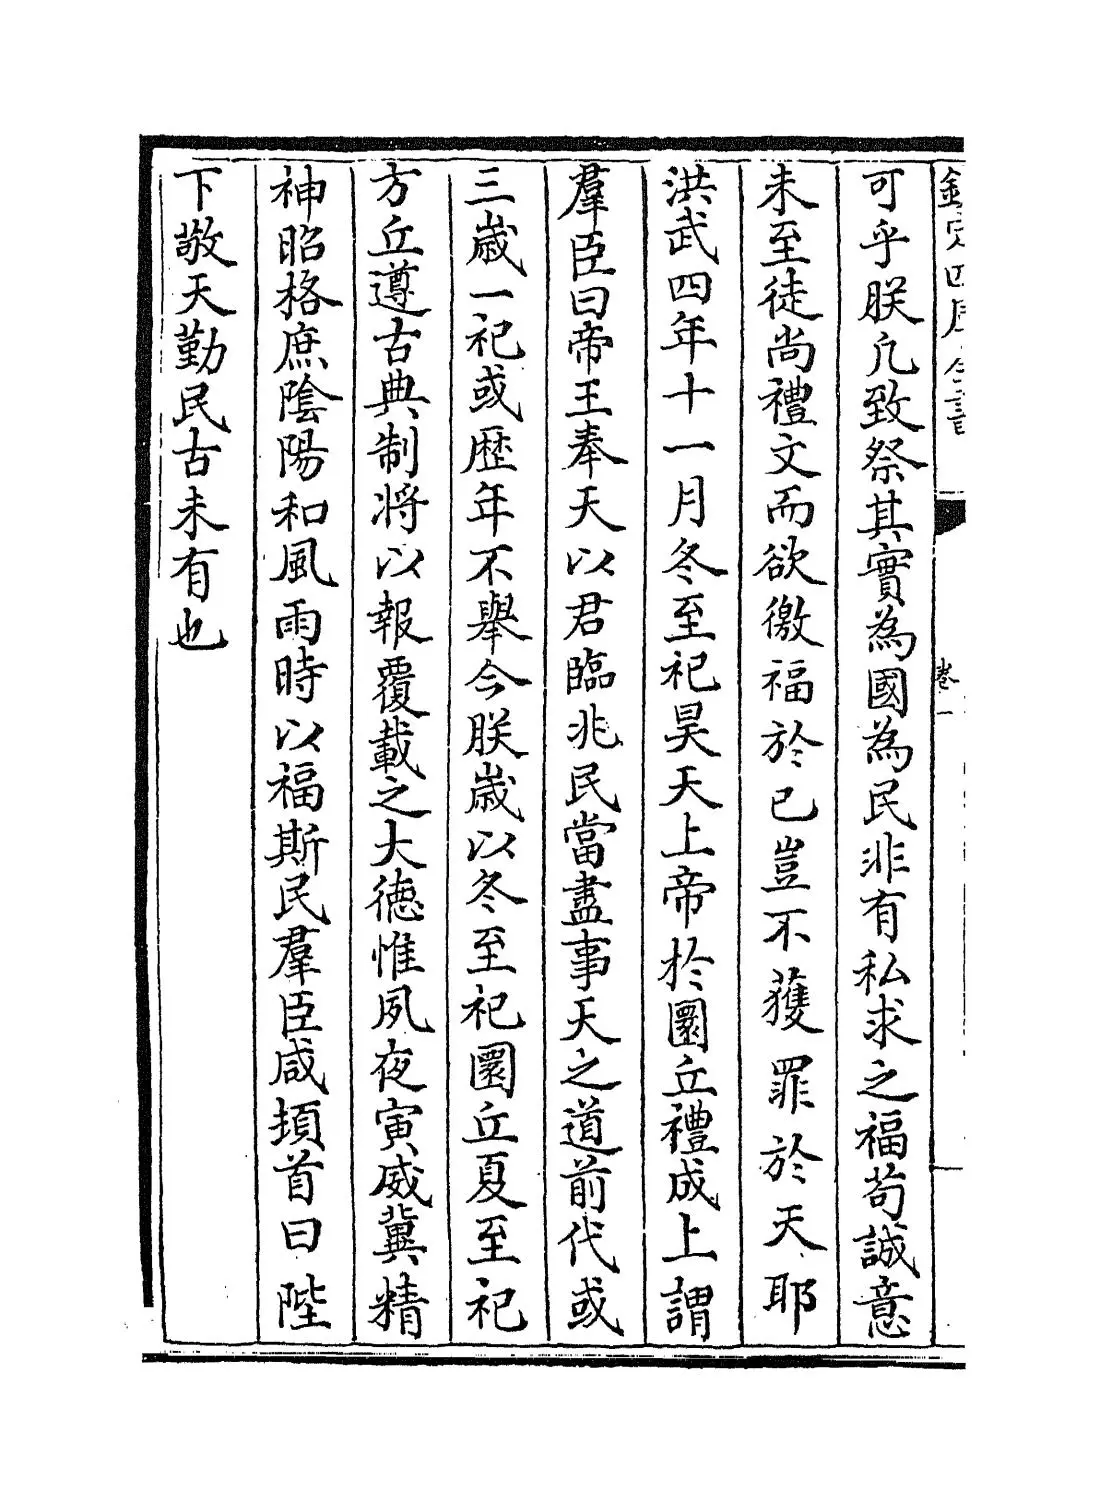 欽定四庫全書
卷一
可乎朕凡致祭其實為國為民非有私求之福苟誠意
未至徒尚禮文而欲徼福於已豈不獲罪於天耶
洪武四年十一月冬至祀昊天上帝於圜丘禮成上謂
羣臣曰帝王奉天以君臨兆民當盡事天之道前代或
三歲一祀或歴年不舉今朕歲以冬至祀圜丘夏至祀
方丘遵古典制将以報覆載之大徳惟夙夜寅威冀精
神昭格庶隂陽和風雨時以福斯民羣臣咸頓首曰陛
下敬天勤民古未有也